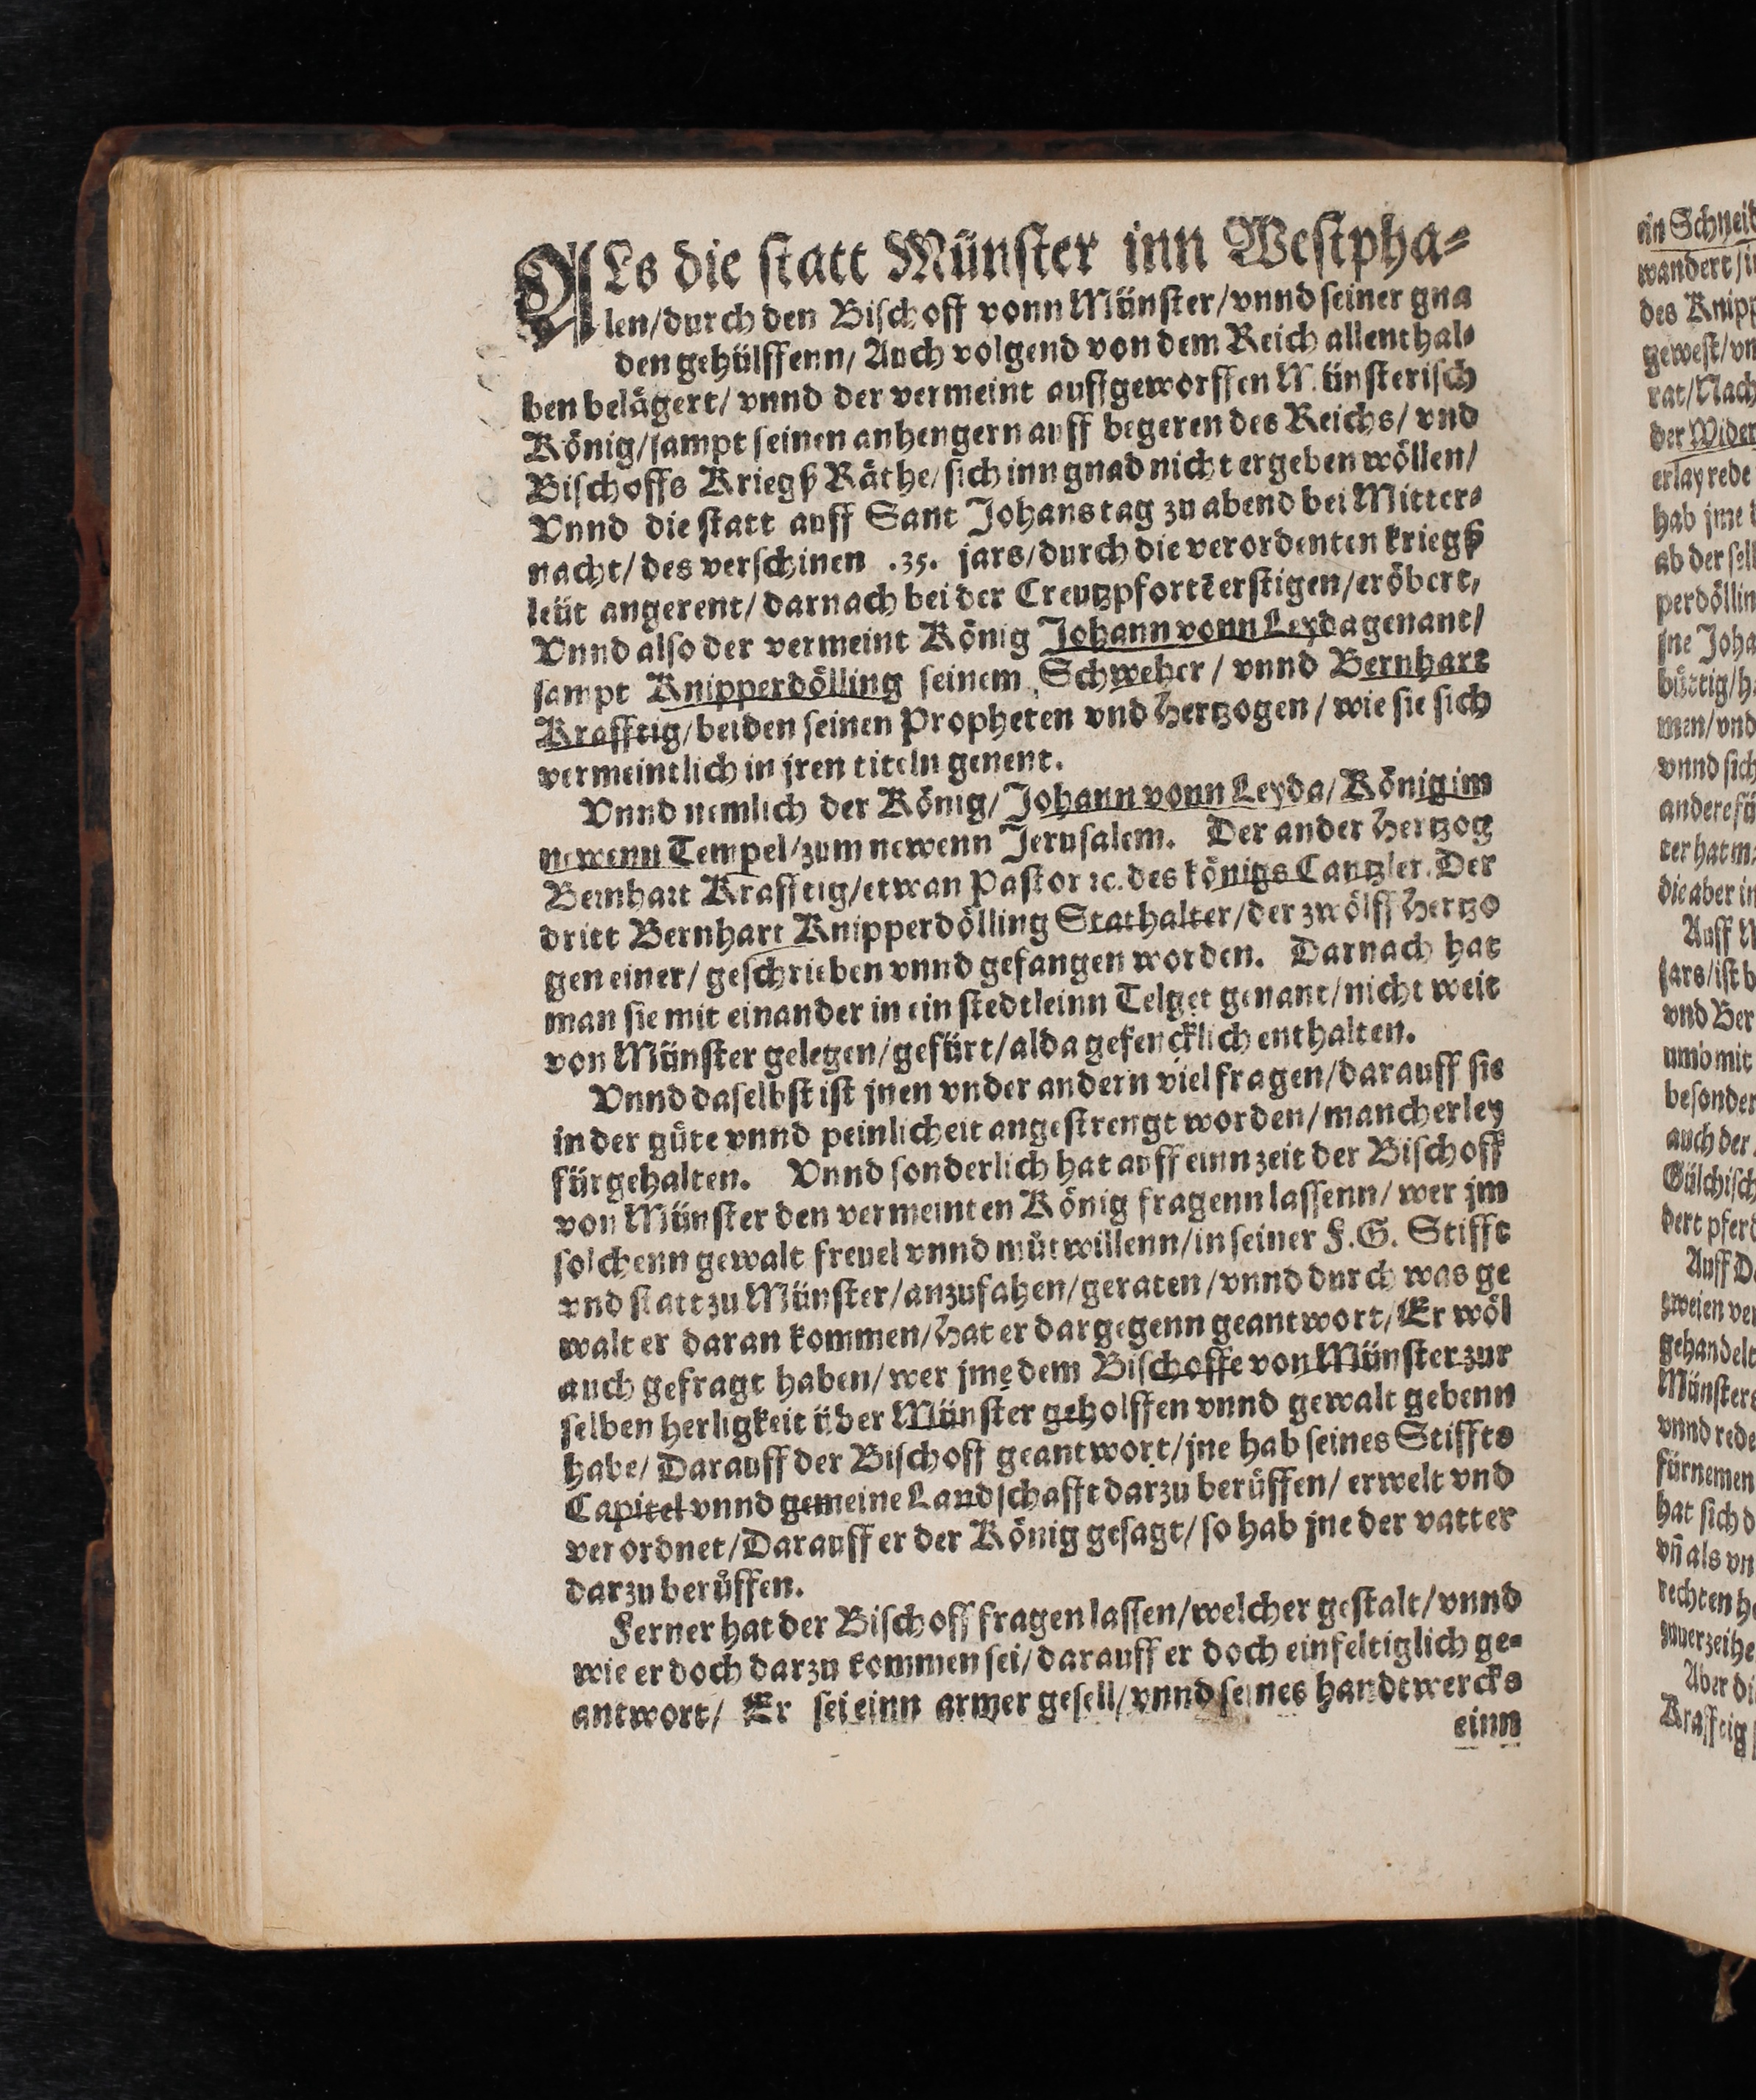 ALs die statt Münster inn Westpha⸗
len/durch den Bischoff vonn Münster/vnnd seiner gna
den gehülffenn/ Auch volgend von dem Reich allenthal⸗
ben belägert/ vnnd der vermeint auffgeworffen Münsterisch
König/sampt seinen anhengern auff begeren des Reichs/ vnd
Bischoffs Kriegß Räthe/ sich inn gnad nicht ergeben wöllen/
Vnnd die statt auff Sant Johans tag zu abend bei Mitter⸗
nacht/ des verschinen .35. jars/durch die verordenten kriegß
leüt angerent/ darnach bei der Creutzpfortē erstigen/eröbert,
Vnnd also der vermeint König Johann vonn Leyda genant/
sampt Knipperdölling seinem Schweher / vnnd Bernhart
Krafftig/beiden seinen Propheten vnd Hertzogen / wie sie sich
vermeintlich in jren titeln genent.
Vnnd nemlich der König/ Johann vonn Leyda/ König im
newenn Tempel/zum newenn Jerusalem. Der ander Hertzog
Bernhart Krafftig/etwan Pastor ꝛc. des königs Cantzler. Der
dritt Bernhart Knipperdölling Stathalter/der zwölff Hertzo
gen einer/ geschrieben vnnd gefangen worden. Darnach hat
man sie mit einander in ein stedtleinn Telget genant/nicht weit
von Münster gelegen/gefürt/alda gefencklich enthalten.
Vnnd daselbst ist jnen vnder andern viel fragen/darauff sie
in der güte vnnd peinlicheit angestrengt worden/mancherley
fürgehalten. Vnnd sonderlich hat auff einn zeit der Bischoff
von Münster den vermeinten König fragenn lassenn/ wer jm
solchenn gewalt freuel vnnd mütwillenn/in seiner F.G. Stifft
vnd statt zu Münster/anzufahen/geraten /vnnd durch was ge
walt er daran kommen/Hat er dargegenn geantwort/Er wöl
auch gefragt haben/ wer jme dem Bischoffe von Münster zur
selben herligkeit über Münster geholffen vnnd gewalt gebenn
habe/ Darauff der Bischoff geantwort/jne hab seines Stiffts
Capitel vnnd gemeine Landschafft darzu berůffen/ erwelt vnd
verordnet/Darauff er der König gesagt/ so hab jne der vatter
darzu berůffen.
Ferner hat der Bischoff fragen lassen/welcher gestalt/vnnd
wie er doch darzu kommen sei/ darauff er doch einfeltiglich ge⸗
antwort/ Er sei einn armer gesell/vnnd seines handtwercks
einn
ein Schneid
wandert/i
des Knipp
gewest/vn
rat/Nach
der Wider
erlay rede
hab jme
ab der sell
perdöllin
jne Joha
bürtig/h
men/vnd
vnnd sich
andere fü
ter hat m
die aber in
Auff
jars/ist b
vnd Ber
umb mit
besonder
auch der
Gülchisch
dert pferd
Auff D
zweien ver
gehandelt
Münsters
vnnd rede
fürnemen
hat sich d
vñ als vn
rechten h
zuuerzeihe
Aber di
Krafftig